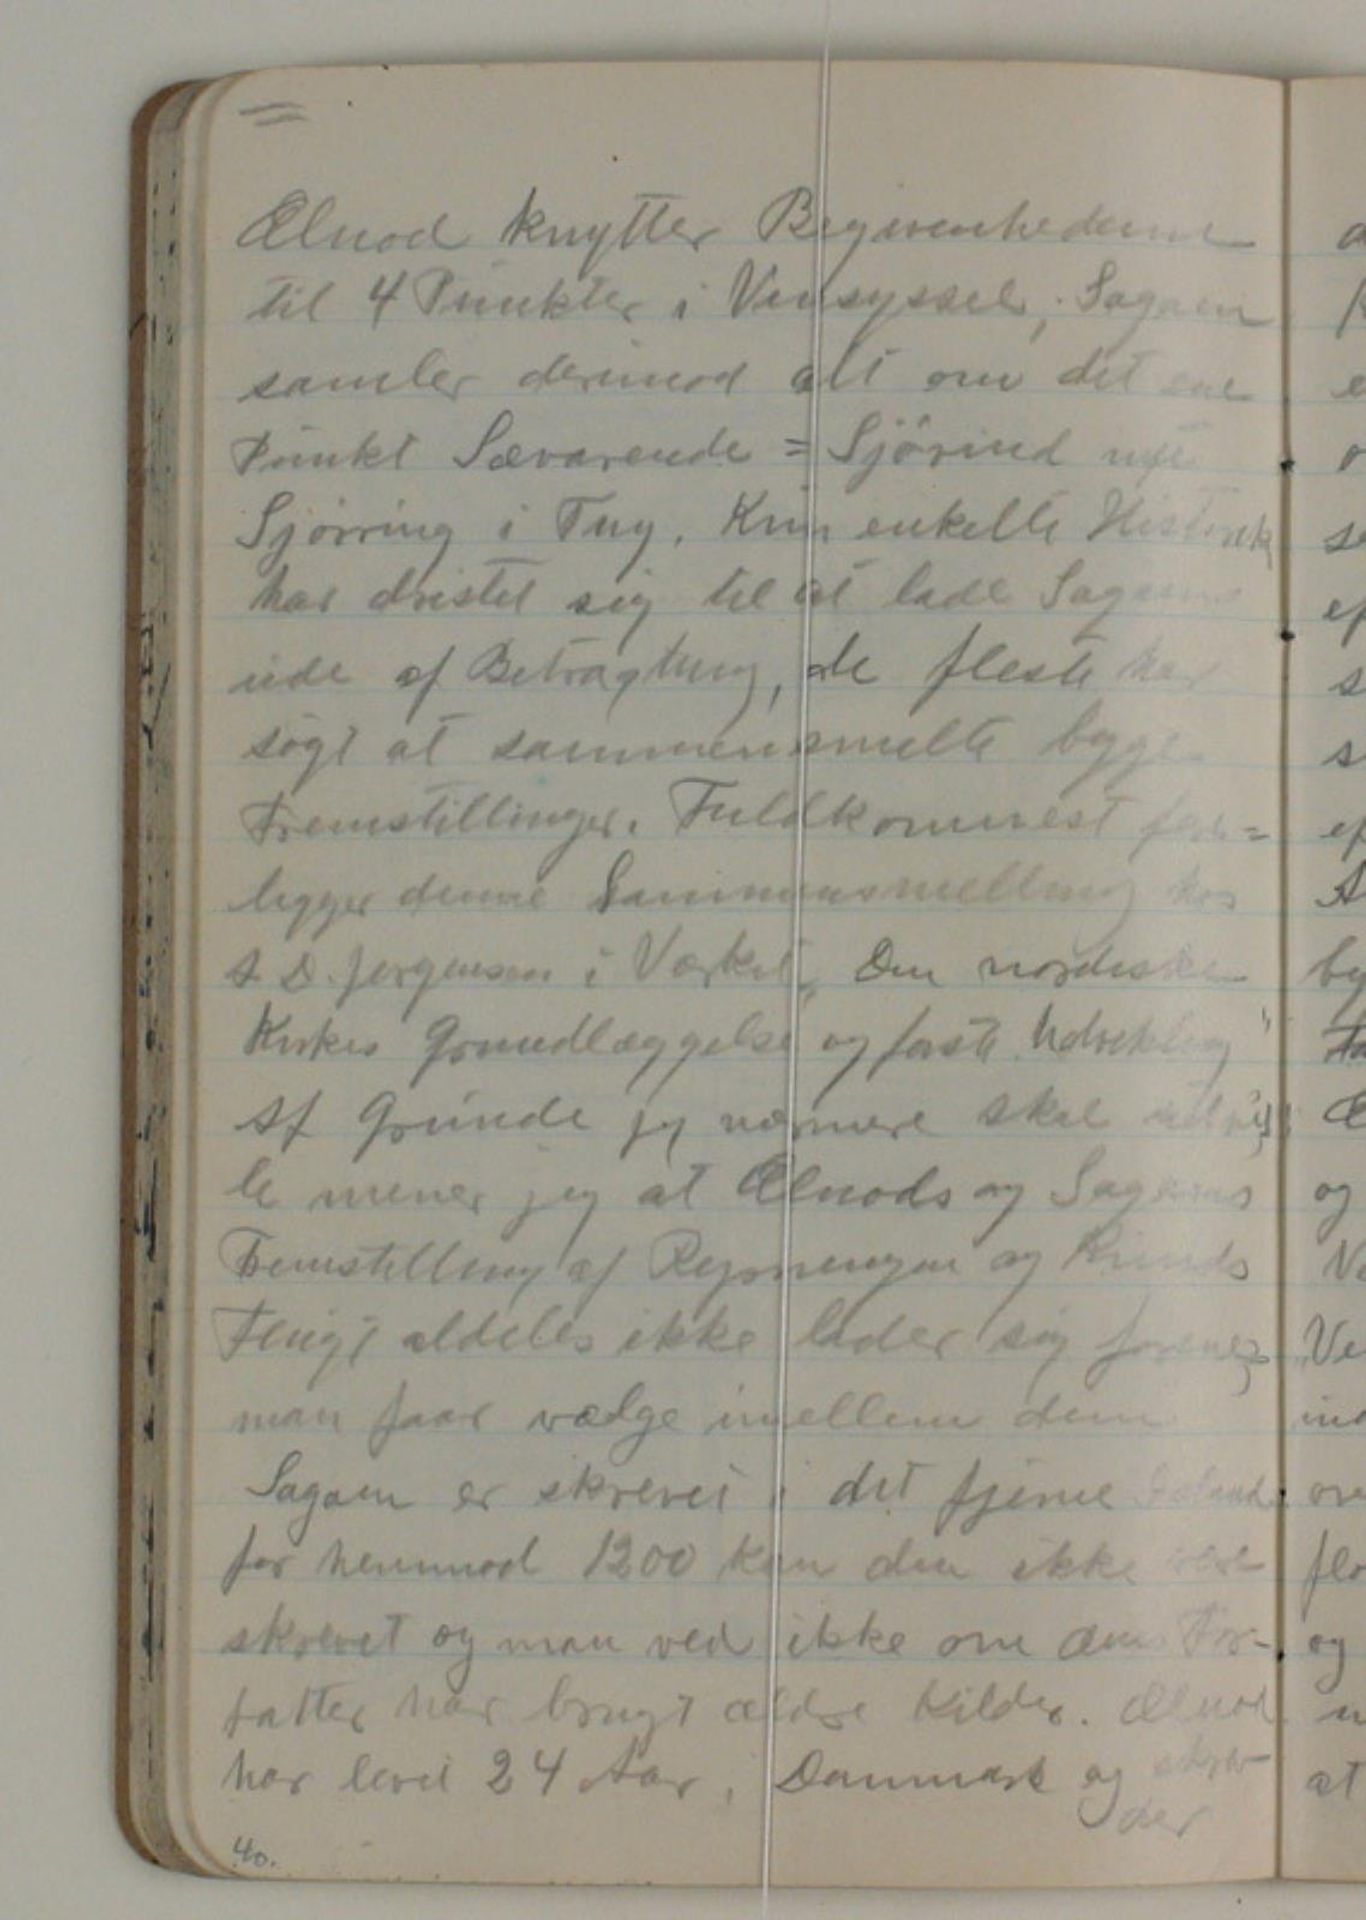 Ælnod knytter Begivenhederne
til 4 Punkter i Vensyssel, Sagaen
samler derimod alt om det ene
Punkt Sævarende = Sjörind
Sjørring i Tuy. Kun enkelte Historik
har dristet sig til at lade Sagaen
ude af Betragtning, de fleste har
søgt at sammensmelte begge
Fremstillinger. Fuldkomnest fore=
ligger denne Sammensmeltning hos
A. D. Jørgensen i Værket, Den nordiske
Kirkes Grundlæggelse og første Udvikling"
Af Grunde jeg nærmere skal
le mener jeg at Ælnods og Sagaens
Fremstilling af Rejsningen og Knuds
Flugt aldeles ikke lader sig forene,
man faar vælge imellem dem
Sagaen er skrevet i det fjerne Island
før henimod 1200 kan den ikke være
skrevet og man ved ikke om dens For-
fatter har brugt ældre Kilder. Ælnod
har levet 24 Aar i Danmark og skre-
der
40.